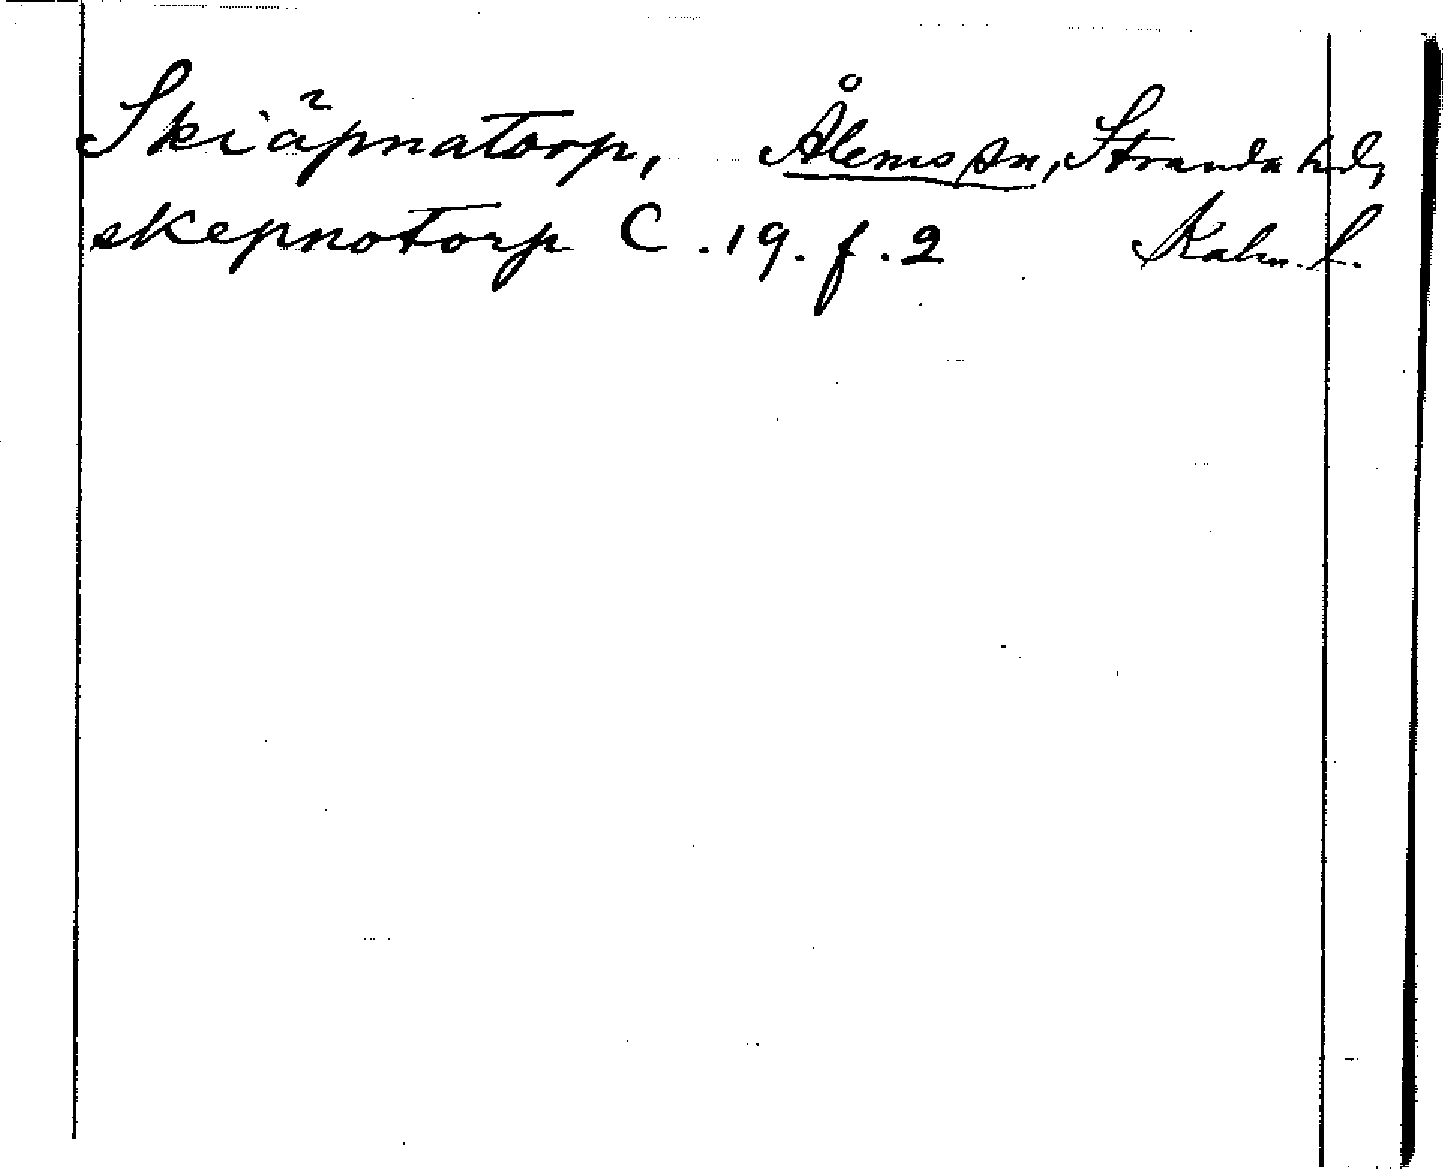 Skiäpnatorp, Ålems sn, Stranda hd,
skepnotorp C. 19. f. 2 Kalm. l.